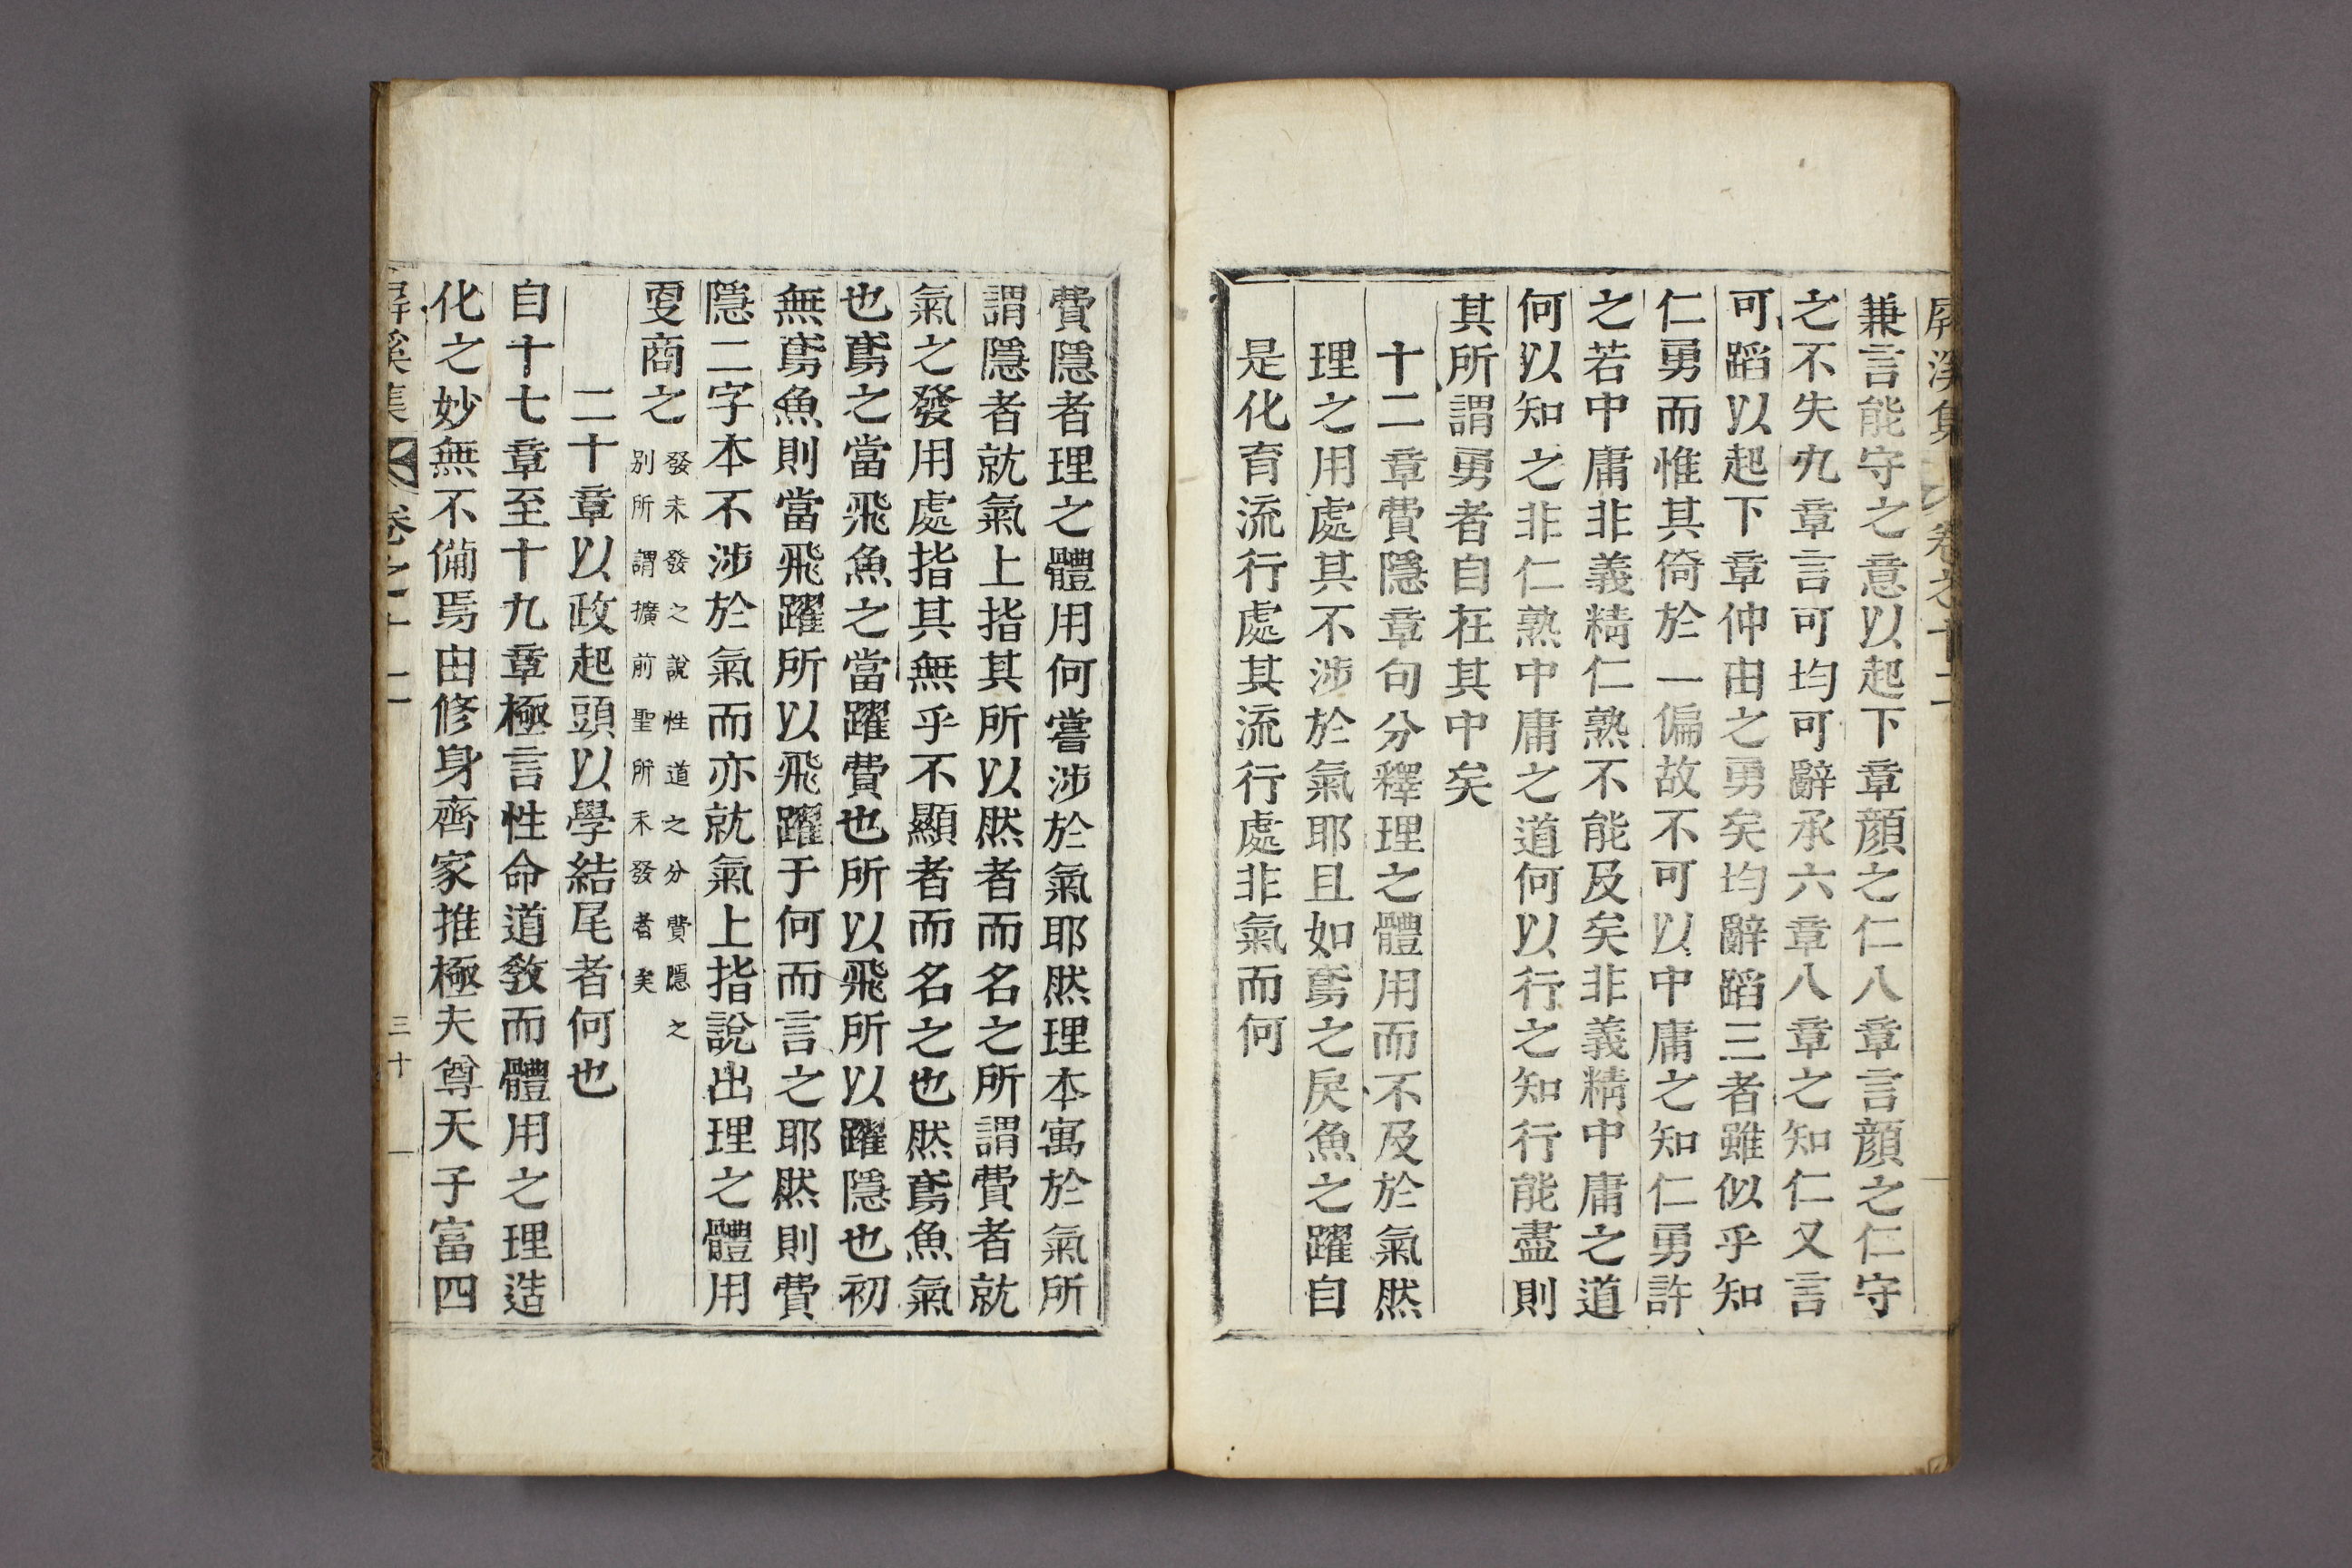 屏溪集 卷之十二
兼言能守之意以起下章顔之仁八章言顔之仁守
之不失九章言可均可辭承六章八章之知仁又言
可蹈以起下章仲由之勇矣均辭蹈三者雖似乎知
仁勇而惟其倚於一偏故不可以中庸之知仁勇許
之若中庸非義精仁熟不能及矣非義精中庸之道
何以知之非仁熟中庸之道何以行之知行能盡則
其所謂勇者自在其中矣
十二章費隱章句分釋理之體用而不及於氣然
理之用處其不涉於氣耶且如鳶之戾魚之躍自
是化育流行處其流行處非氣而何
費隱者理之體用何嘗涉於氣耶然理本寓於氣所
謂隱者就氣上指其所以然者而名之所謂費者就
氣之發用處指其無乎不顯者而名之也然鳶魚氣
也鳶之當飛魚之當躍費也所以飛所以躍隱也初
無鳶魚則當飛躍所以飛躍于何而言之耶然則費
隱二字本不涉於氣而亦就氣上指說出理之體用
更商之
發未發之說性道之分費隱之
別所謂擴前聖所未發者矣
二十章以政起頭以學結尾者何也
自十七章至十九章極言性命道敎而體用之理造
化之妙無不備焉由修身齊家推極夫尊天子富四
屏溪集 卷之十二 三十一